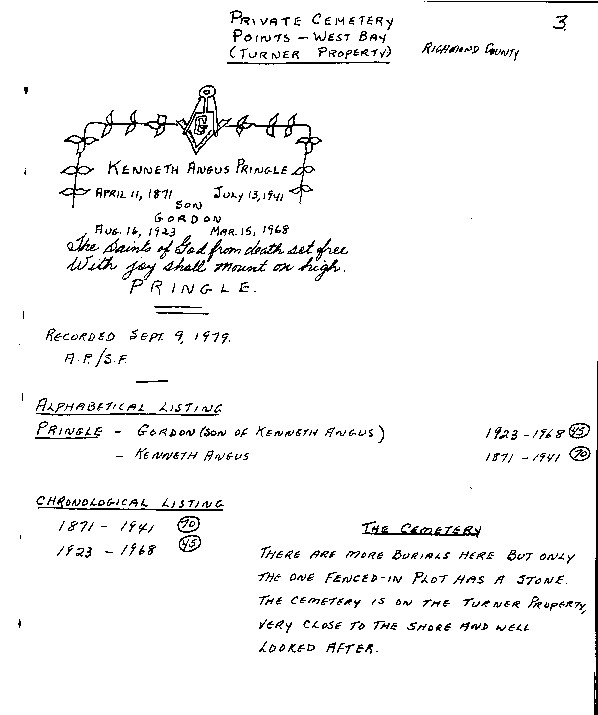 PRIVATE CEMETERY
POINTS - WEST BAY
(TURNER PROPERTY)
RICHMOND COUNTY
3.
G
KENNETH ANGUS PRINGLE
APRIL 11, 1871 JULY 13, 1941
SON
GORDON
AUG. 16, 1923 MAR. 15, 1968
The Saints of God from death set free
With joy shall mount on high.
PRINGLE.
RECORDED SEPT. 9, 1979.
A.P./S.F.
ALPHABETICAL LISTING
PRINGLE - GORDON (SON OF KENNETH ANGUS) 1923 - 1968 45
- KENNETH ANGUS 1871 - 1941 70
CHRONOLOGICAL LISTING
1871 - 1941 70
1923 - 1968 45
THE CEMETERY
THERE ARE MORE BURIALS HERE BUT ONLY
THE ONE FENCED-IN PLOT HAS A STONE.
THE CEMETERY IS ON THE TURNER PROPERTY,
VERY CLOSE TO THE SHORE AND WELL
LOOKED AFTER.